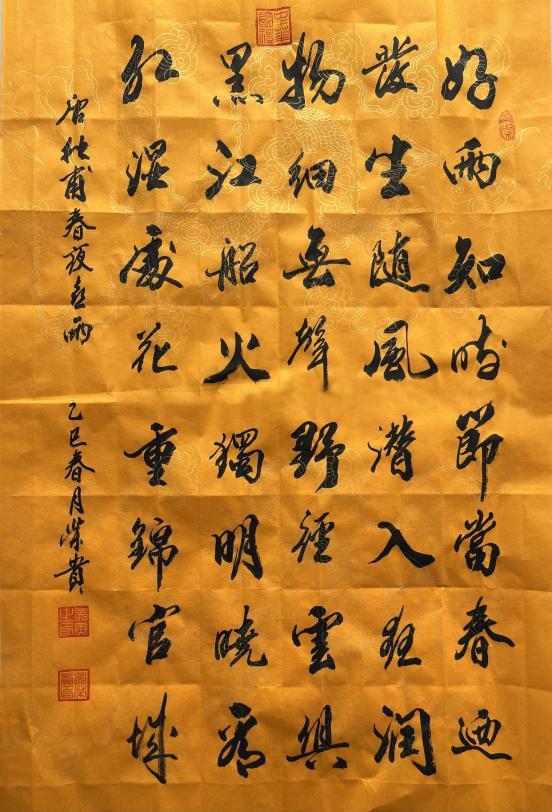 好雨知時節當春迺
發生随風潜入夜潤
物細無聲野徑雲俱
黑江船火獨明曉看
红濕處花重錦官城
唐杜甫春夜喜雨 乙巳春月榮貴